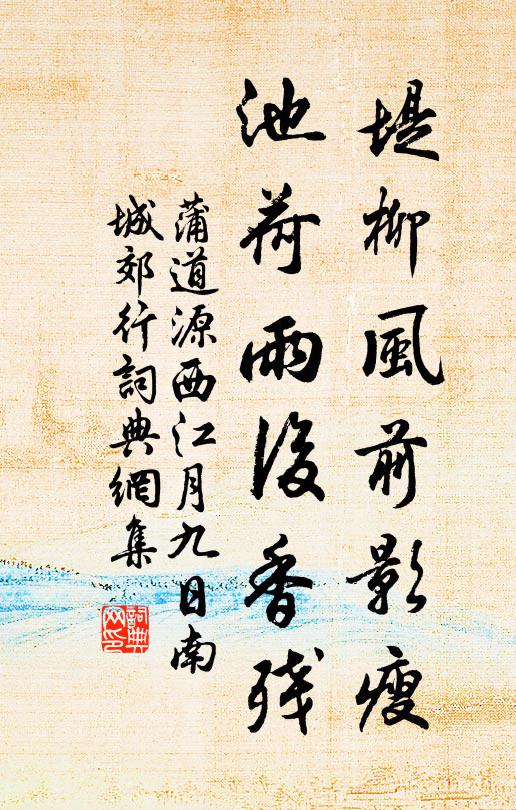 堤柳風前影瘦
池荷雨後香殘
蒲道源西江月九日南
城郊行詞典網集
詞典
网印